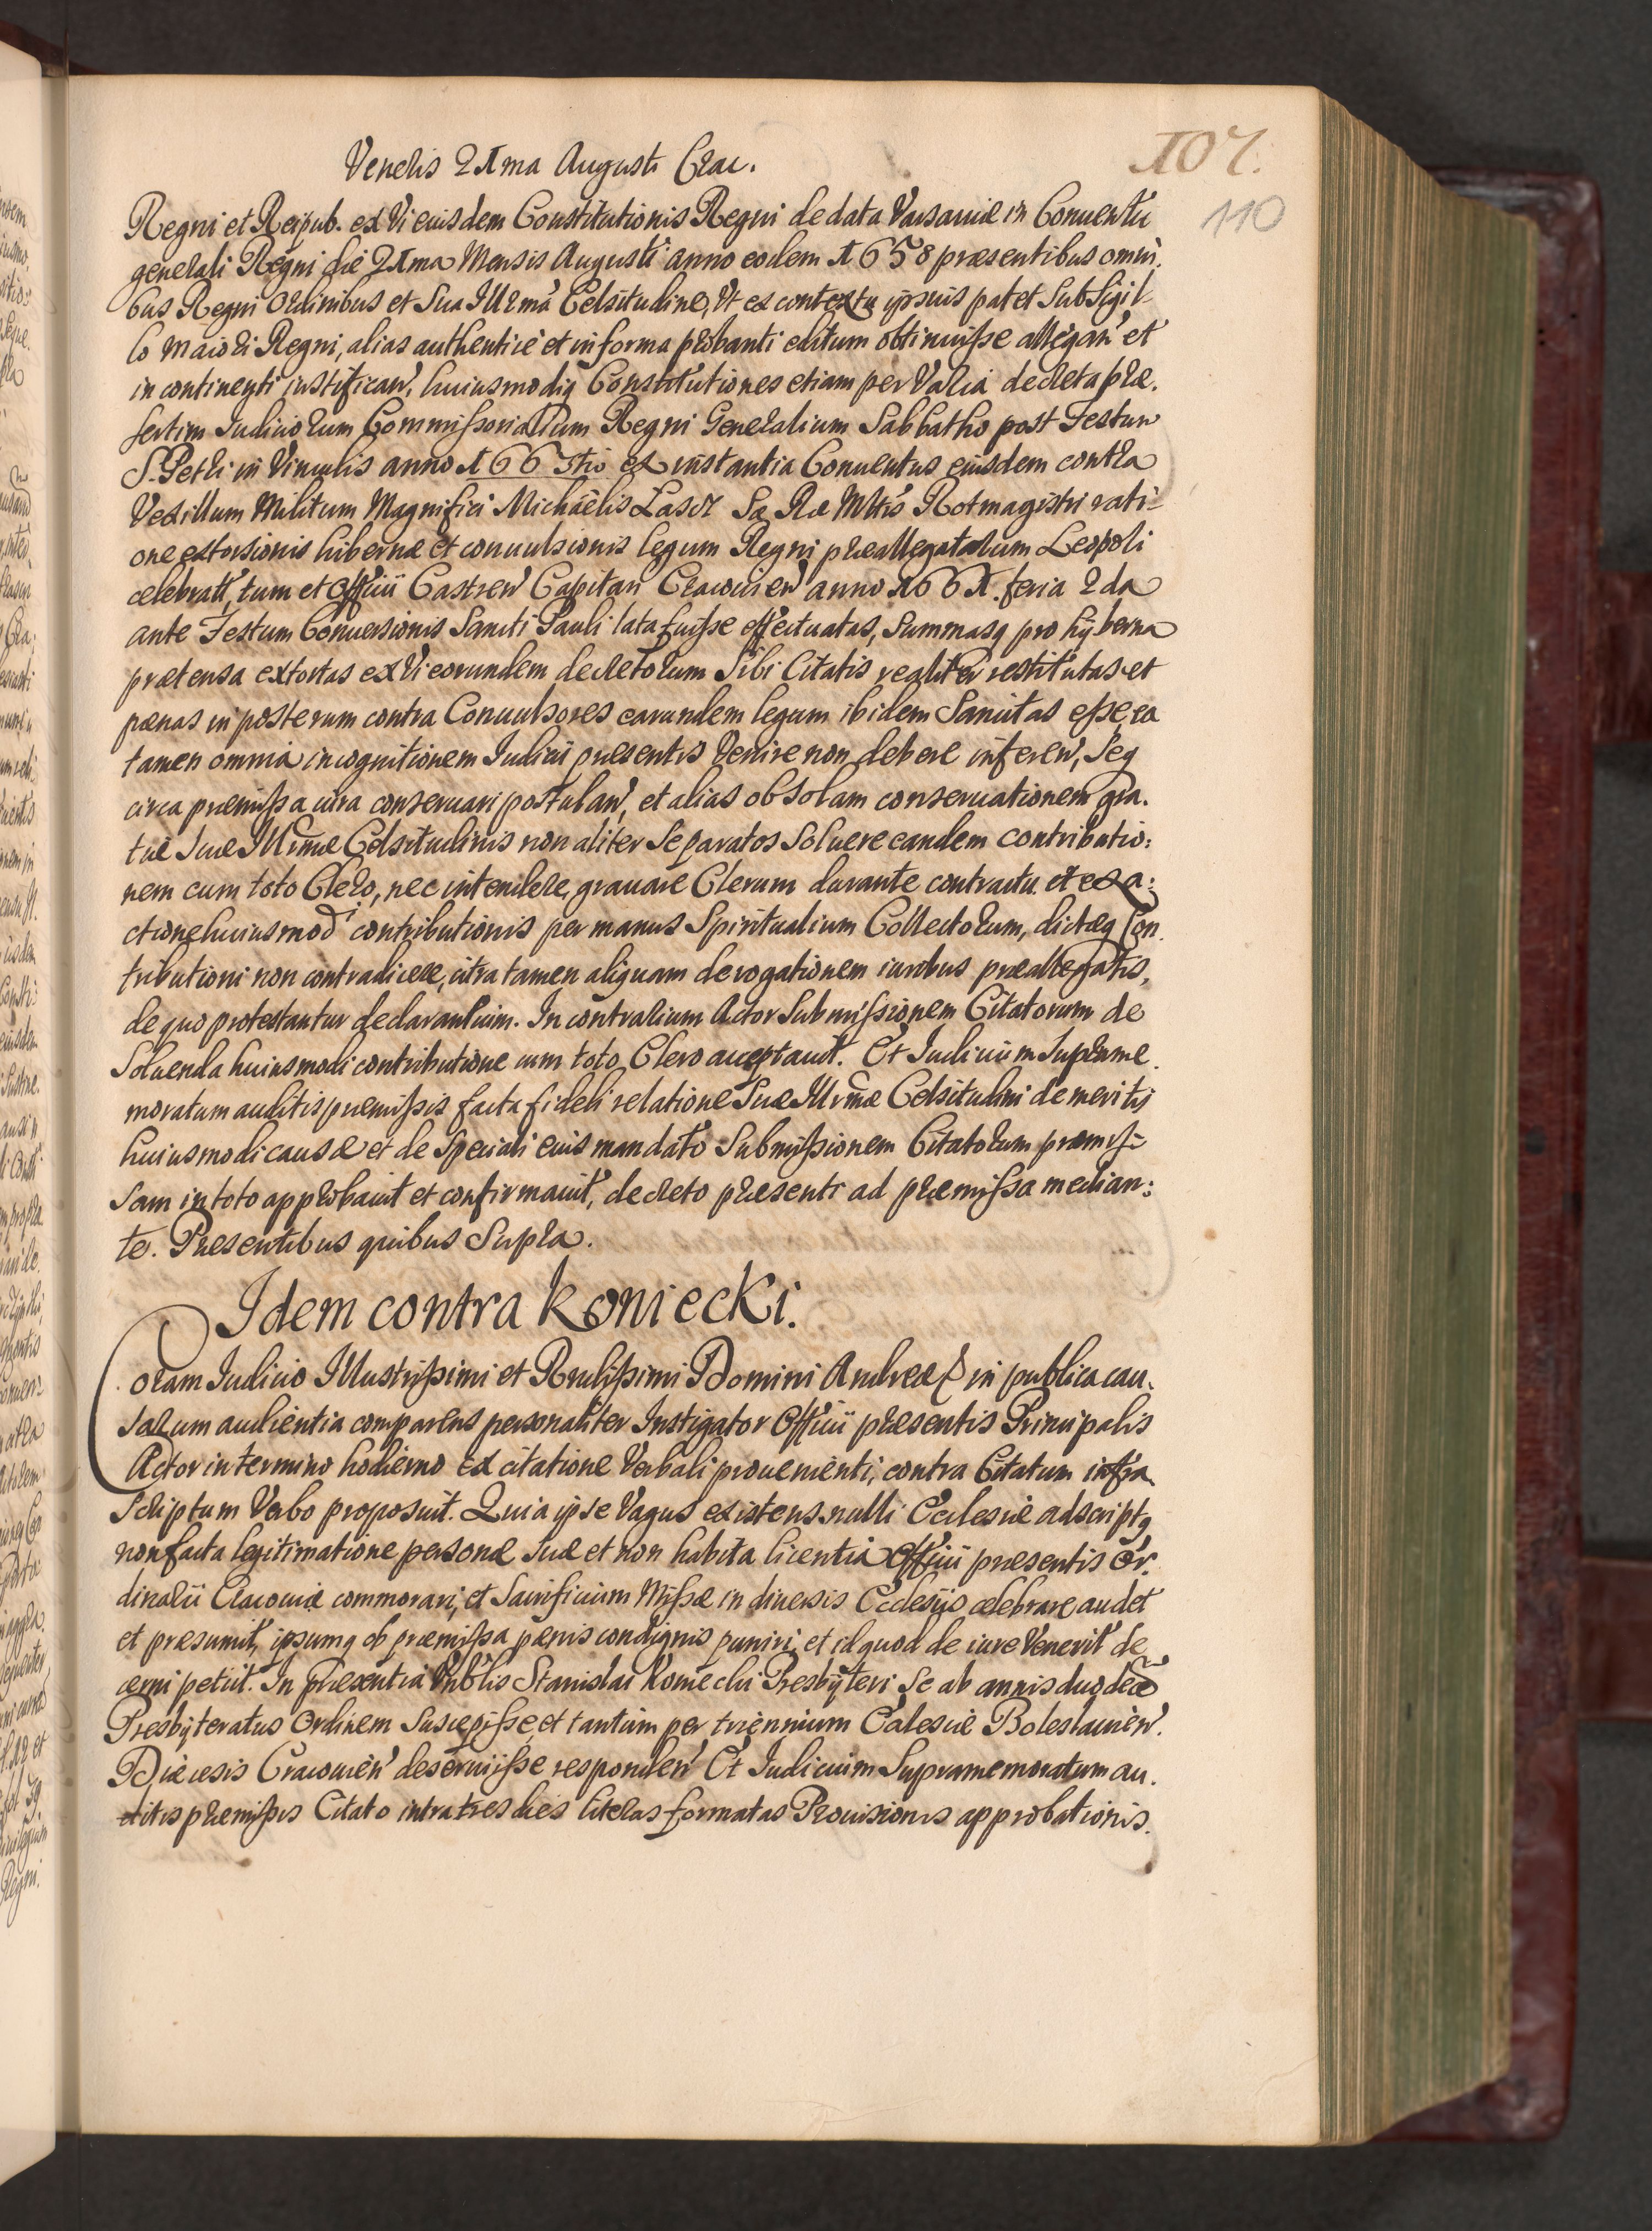 Veneris 21ma Augusti Crac.
107.
110
Regni et Reipub. ex Vi eiusdem Constitutionis Regni de data Varsaviæ in Conventu
generali Regni die 21ma Mensis Augusti anno eodem 1658 præsentibus omni.
bus Regni Ordinibus et Sua Illrma Celsitudine, Vt ex contextu ipsius patet Sub Sigil
lo Maiori Regni, alias authenticè et in forma probanti editum obtinuisse allegan' et
in continenti iustifican', huiusmodiq Constitutiones etiam per Varia decreta præ.
sertim Iudiciorum Commissorialium Regni Generalium Sabbatho post Festum
S. Petri in Vinculis anno 1663tio ex instantia Conventus eiusdem contra
Vexillum Militum Magnifici Michaëlis Lascz Sæ Ræ Mttis Rotmagistri rati=
one extorsionis hibernæ et convulsionis legum Regni præallegatarum Leopoli
celebratt', tum et Officii Castren' Capitan' Cracovien' anno 1661. feria 2da
ante Festum Conversionis Sancti Pauli lata fuisse effectuatas, Summasq pro hyberna
prætensa extortas ex Vi eorundem decretorum Sibi Citatis realiter restitutas et
pœnas in posterum contra Convulsores earundem legum ibidem Sancitas esse, ea
tamen omnia in cognitionem Iudicii præsentis Venire non debere inferen', Seq
circa præmissa iura conservari postulan', et alias ob Solam conservationem gra.
tiæ Suæ Illrmæ Celsitudinis non aliter Se paratos Solvere eandem contributio:
nem cum toto Clero, nec intendere, gravare Clerum durante contractu et exa:
ctione huiusmodi contributionis per manus Spiritualium Collectorum, dictæq Con
tributioni non contradicere, citra tamen aliquam derogationem iuribus præallegatis,
de quo protestantur declarantium. In contrarium Actor Submissionem Citatorum de
Solvenda huiusmodi contributione cum toto Clero acceptavit. Et Iudicium Supræme
moratum auditis præmissis facta fideli relatione Suæ Illrmæ Celsitudini de meritis
huiusmodi causæ et de Speciali eius mandato Submissionem Citatorum præmis=
sam in toto approbavit et confirmavit, decreto præsenti ad præmissa median:
te. Præsentibus quibus Supra.
Idem contra Koniecki.
Coram Iudicio Illustrissimi et Rndissimi Domini Andreæ in publica cau.
sarum audientia comparens personaliter Instigator Officii præsentis Principalis
Actor in termino hodierno ex citatione Verbali provenienti, contra Citatum infra
Scriptum Verbo proposuit. Quia ipse Vagus existens nulli Ecclesiæ adscriptq
non facta legitimatione personæ Suæ et non habita licentia Officii præsentis Or.
dinarii Cracoviæ commorari, et Sacrificium Missæ in diversis Ecclesiis celebrare audet
et præsumit, ipsumq ob præmissa pœnis condignis puniri, et id quod de iure Venerit de
cerni petiit. In præsentia Vnblis Stanislai Koniecki Presbyteri Se ab annis duodecē
Presbyteratus Ordinem Suscepisse, et tantùm per triennium Ecclesiæ Boleslavien'.
Diæcesis Cracovien' deserviisse responden' Et Iudicium Supramemoratum au.
ditis præmissis Citato intra tres dies literas formatas Provisionis approbationis.